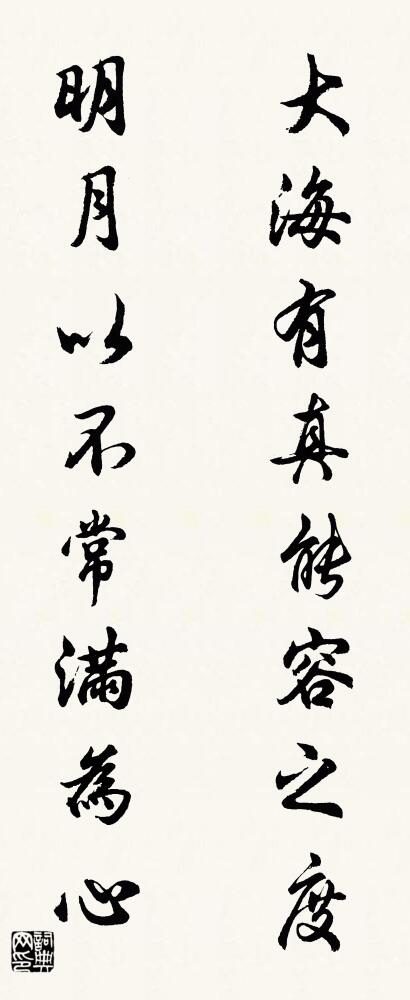 大海有真能容之度
明月以不常滿為心
詞典网印